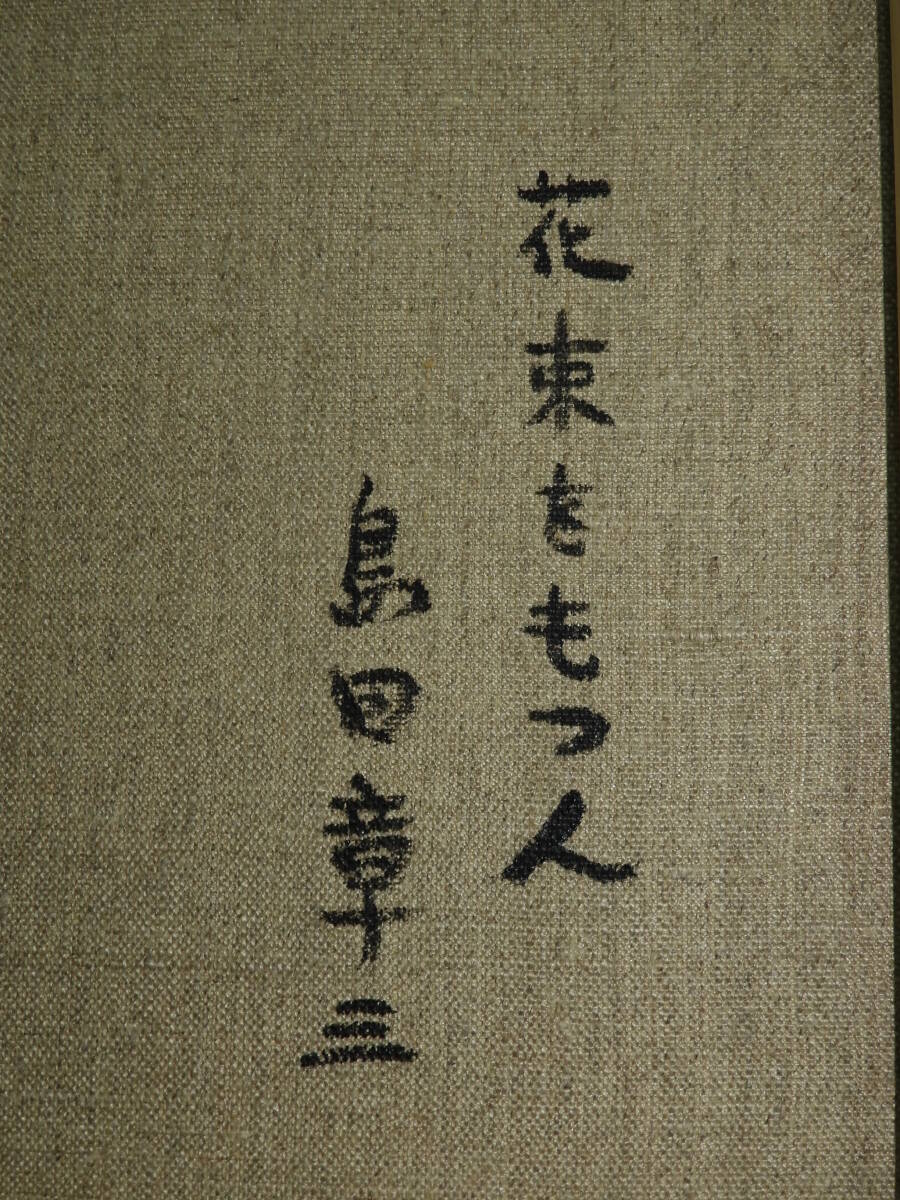 花束をもつ人
島田章三